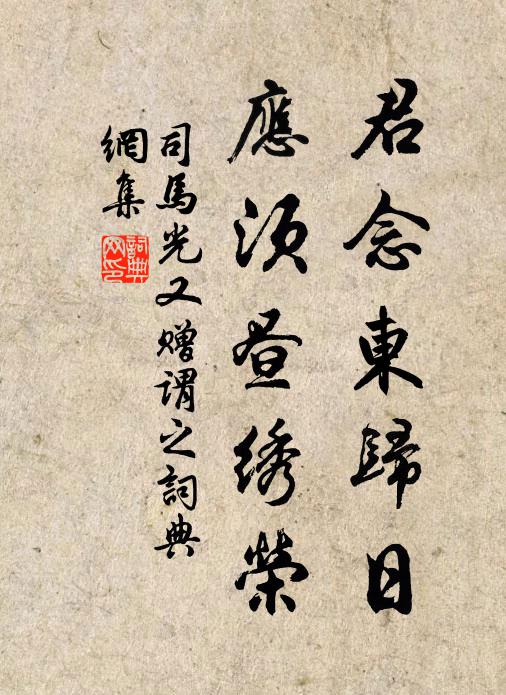 君念東歸日
應須昼绣榮
司馬光又赠謂之詞典
網集
詞典
网印